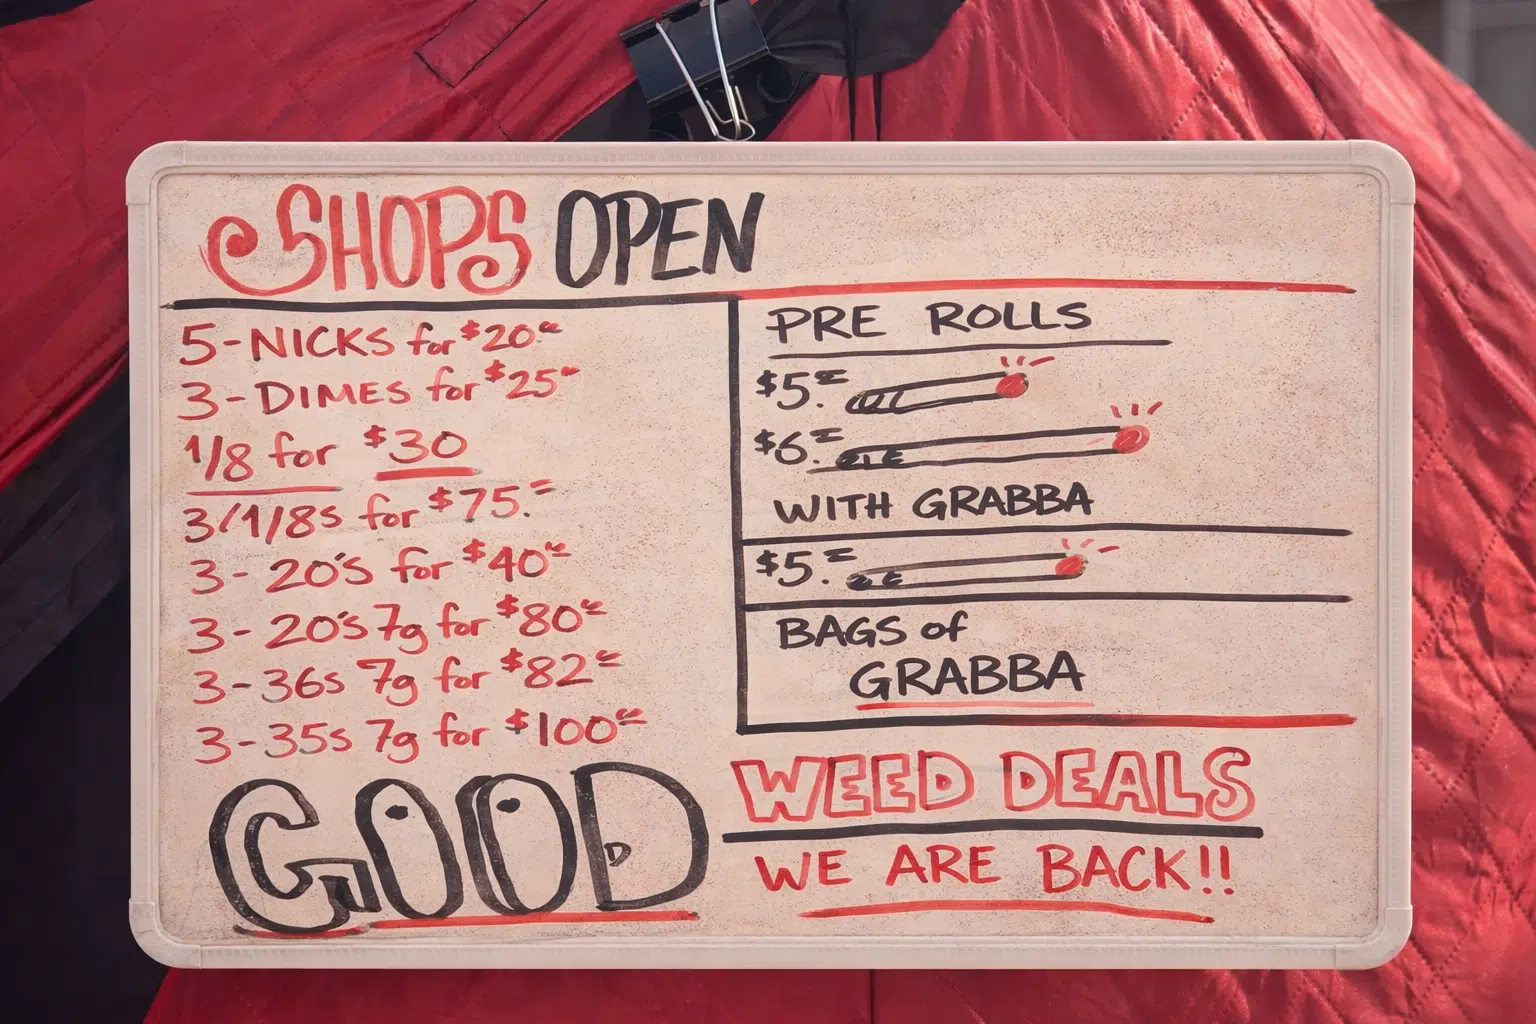 SHOPS OPEN
5-NICKS for $20.00
3-DIMES for $25
1/8 for $30
3/1/8s for $75.
3-20's for $40
3-20's 7g for $80
3-36s 7g for $82
3-35s 7g for $100
GOOD
PRE ROLLS
$5.
$6.
WITH GRABBA
$5.
BAGS of
GRABBA
WEED DEALS
WE ARE BACK!!